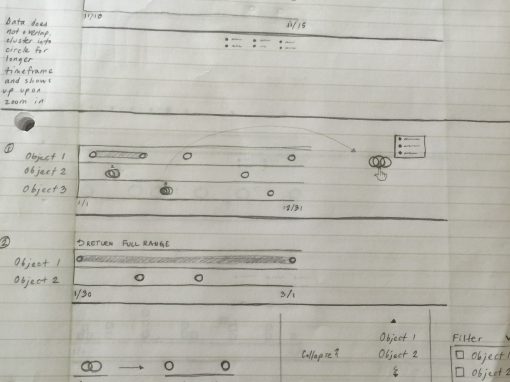 11/10
11/15
Data does
not overlap,
cluster into
circle for
longer
timeframe
and shows
up upon
zoom in
1
Object 1
Object 2
Object 3
1/1
12/31
2
RETURN FULL RANGE
Object 1
Object 2
1/30
3/1
Collapse?
Object 1
Object 2
Filter
Object 1
Object 2